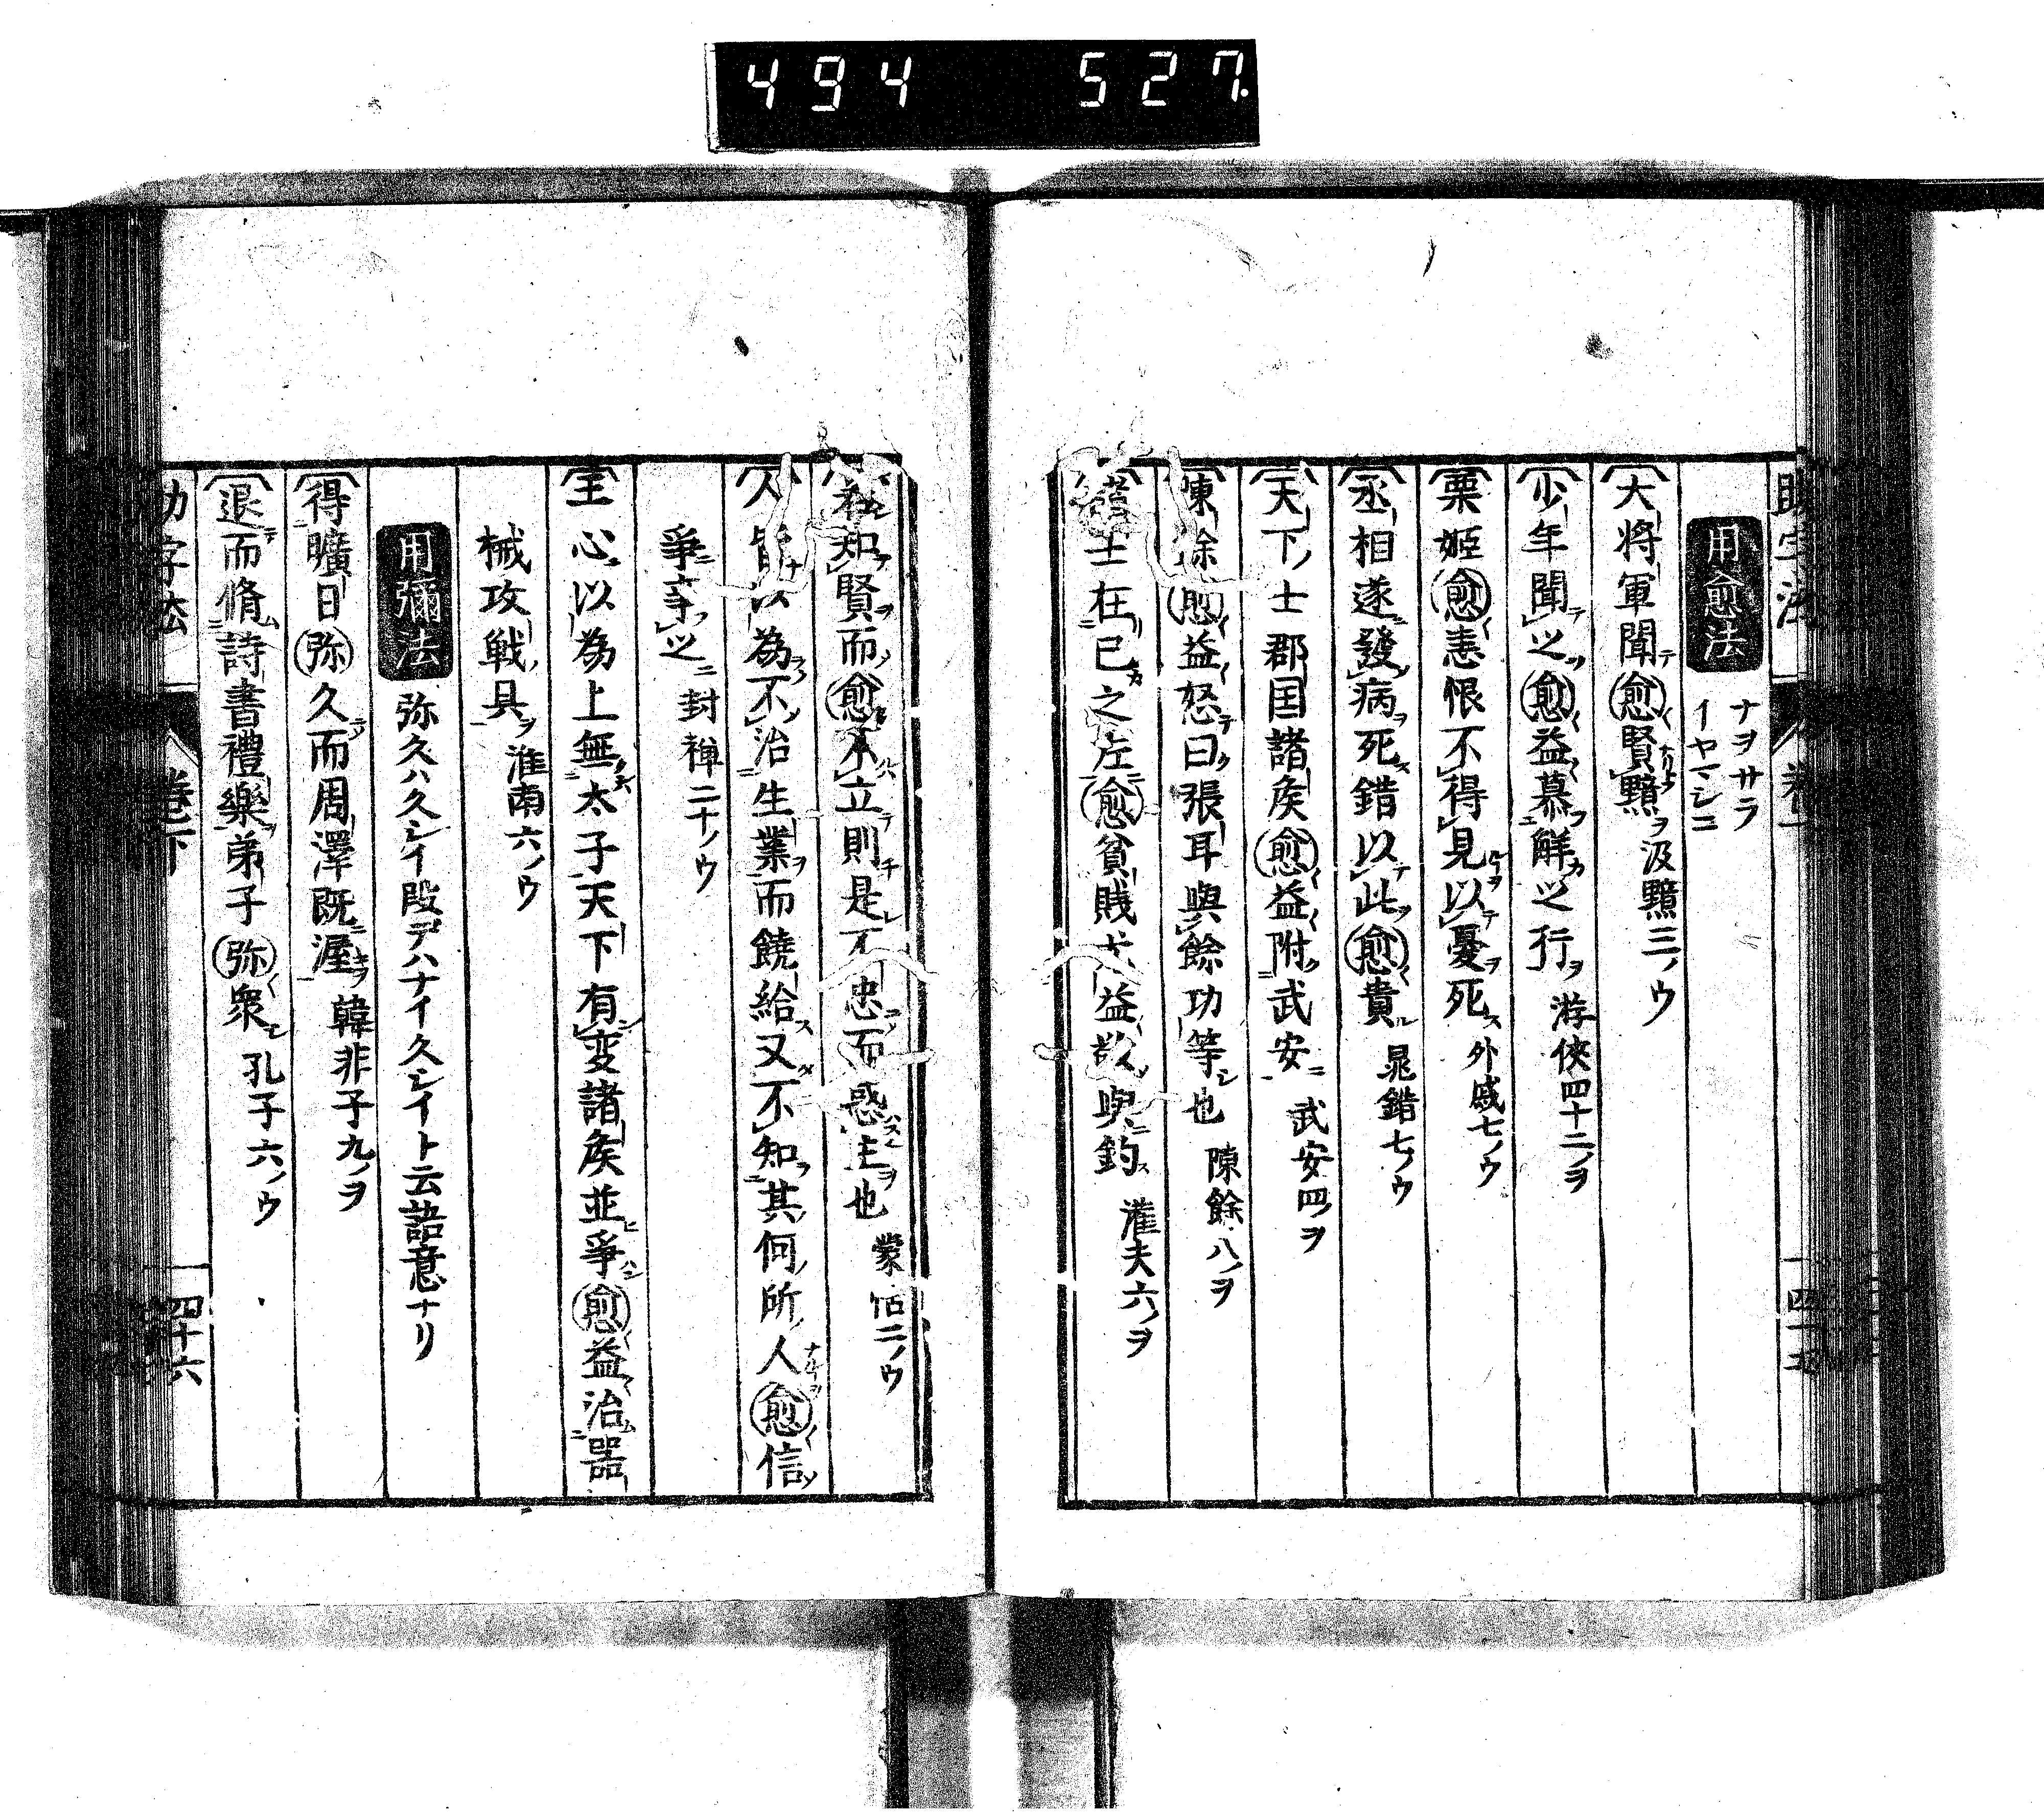 494 527
用愈法 ナヲサラ イヤマシニ
大将軍聞愈賢黯 汲黯三ノウ
少年聞之愈益慕觧之行 游侠四十二ノヲ
栗姫愈恚恨不得見以憂死 外戚七ノウ
丞相遂發病死錯以此愈貴 鼂錯七ノウ
天下士郡国諸矦愈益附武安 武安四ノヲ
陳餘愈益怒曰張耳與餘功等也 陳餘八ノヲ
士在已之左愈貧賤尤益敬與鈞 灌夫六ノヲ
知賢而愈不立則是不忠而惑主也 蒙恬二ノウ
人皆以為不治生業而饒給又不知其何所人愈信
爭事之 封禅二十ノウ
王心以為上無太子天下有変諸矦並爭愈益治噐
械攻戦具 淮南六ノウ
用彌法 弥久ハ久シイ段デハナイ久シイト云語意ナリ
得曠日弥久而周澤既渥 韓非子九ノヲ
退而脩詩書禮樂弟子弥衆 孔子六ノウ
助字法 巻下 四十六